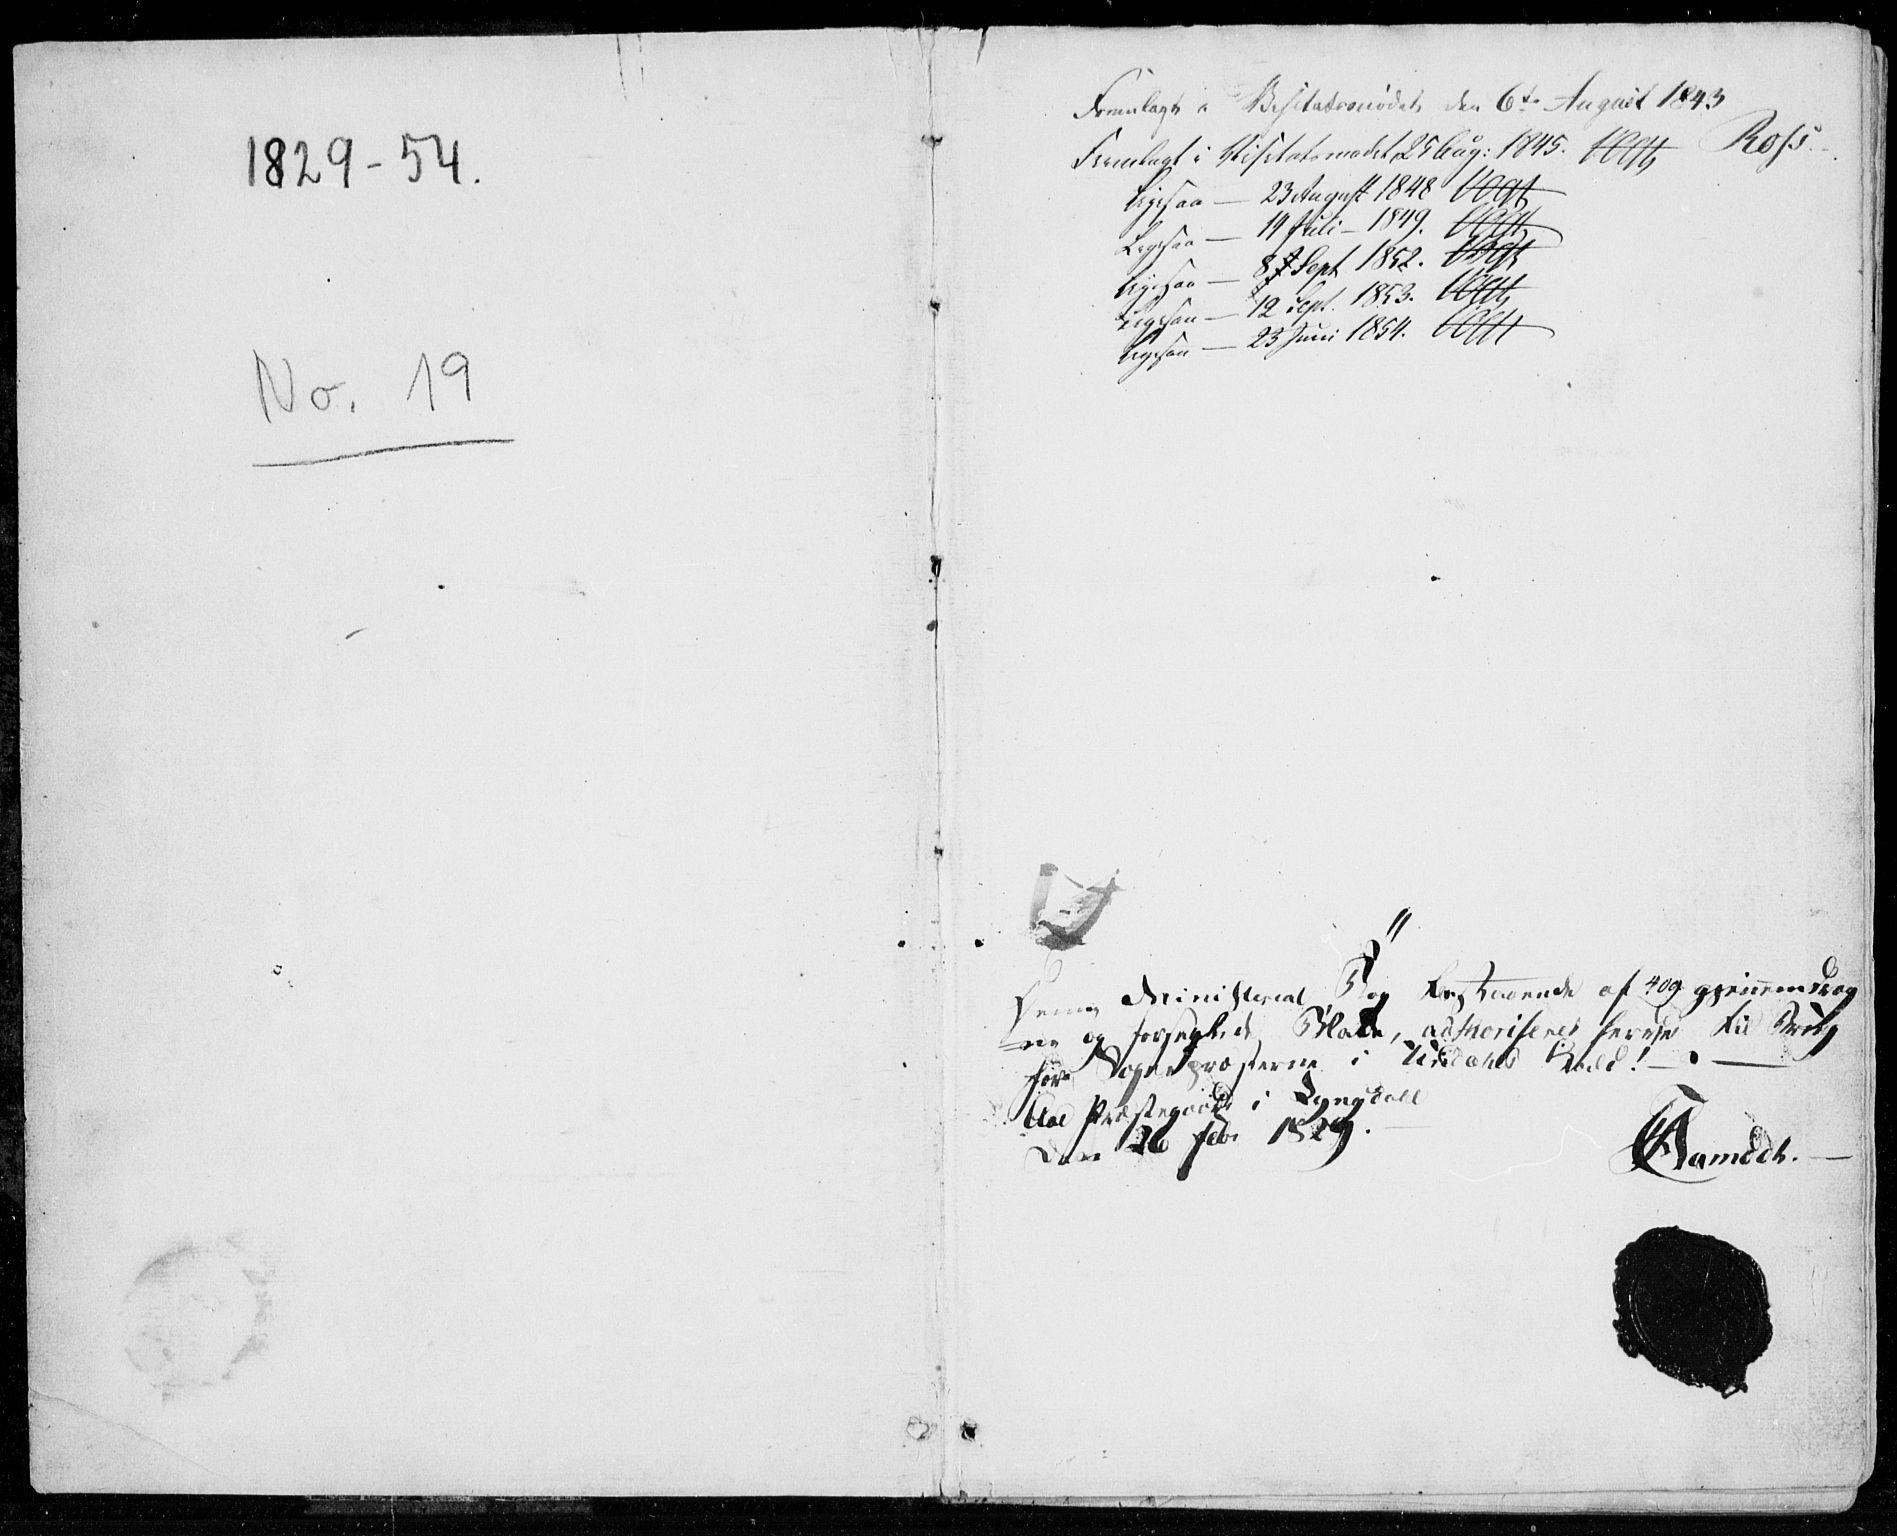 1829-54.
No. 19
Fremlagt i Visitatsmødet den 6te August 1843
Ross.
Fremlagt i Visitatsmødet 25 Aug: 1845. Vogt
Ligesaa — 23 August 1848 Vogt
Ligesaa — 19 Juli — 1849. Vogt
Ligesaa — 8 Sept 1852. Vogt
Ligesaa — 12 Sept. 1853. Vogt
Ligesaa — 23 Juni 1854. Vogt
Denne Ministerial Bog bestaaende af 409 gjennemdrag
ne og forseglede Blade, authoriseres herved til Brug
for Sognepræsterne i Kald! —
Aae Præstegaard i Lyngdall
Den 26 Feb: 1829. —